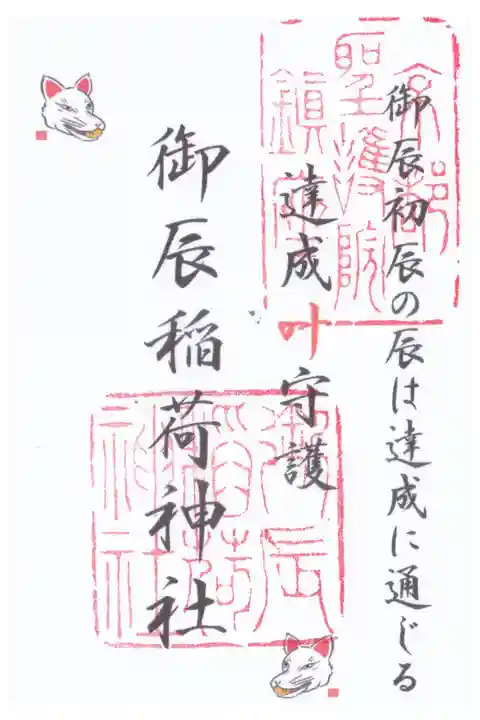 御辰初辰の辰は達成に通じる
達成叶守護
御辰稲荷神社
京都
聖護院
鎮守
御辰
稲荷
神社